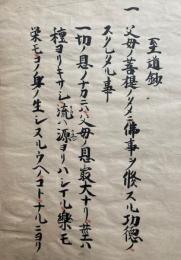 至道鈔
一 父母ノ菩提ノタメニ佛事ヲ修スル功徳ノ
スクレタル事
一切ノ恩ノナカニハ父母ノ恩最大ナリ葉ハ
種ヨリキサシ流ハ源ヨリハシマル樂モ
栄モコノ身ノ生シスルウヘノコトナルニヨリ